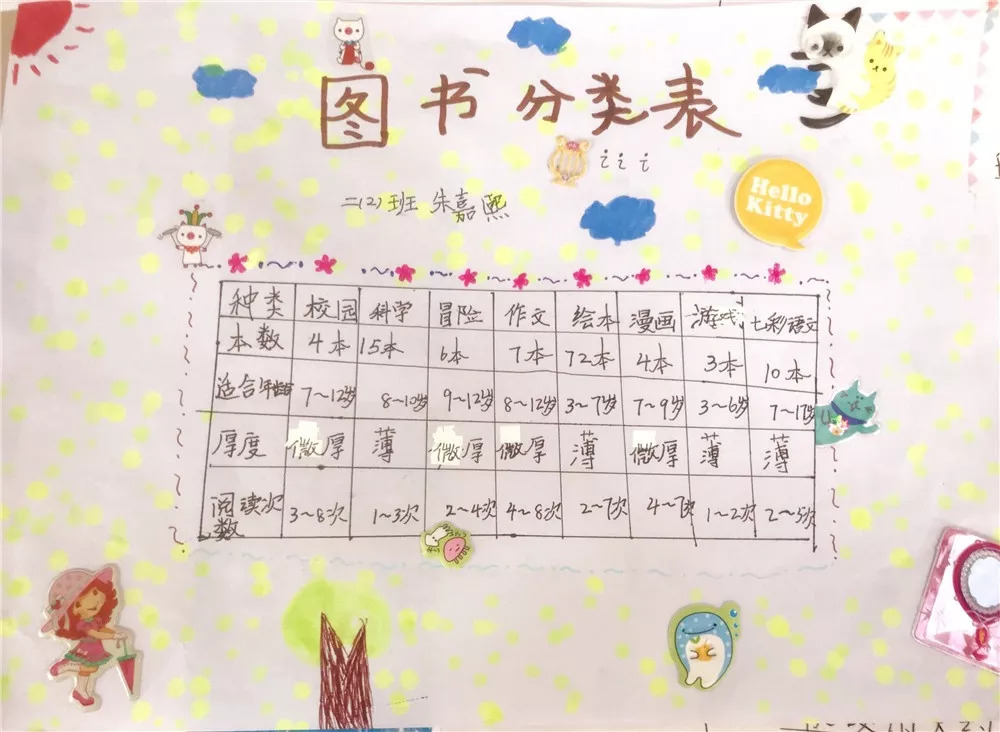 图书分类表
二(2)班 朱嘉熙
Hello
Kitty
种类 校园 科学 冒险 作文 绘本 漫画 游戏 七彩语文
本数 4本 15本 6本 7本 72本 4本 3本 10本
适合年龄 7~12岁 8~10岁 9~12岁 8~12岁 3~7岁 7~9岁 3~6岁 7~17岁
厚度 微厚 薄 微厚 微厚 薄 微厚 薄 薄
阅读次数 3~8次 1~3次 2~4次 4~8次 2~7次 4~7次 1~2次 2~5次